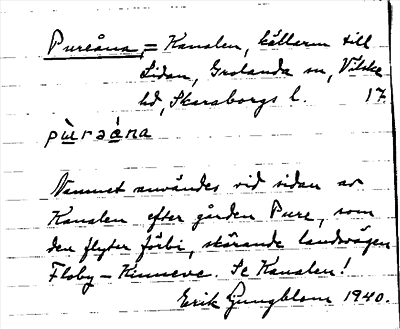 Pureåna, = Kanalen, källarm till
Lidan, Grolanda sn, Vilske
hd, Skaraborgs l. 17.
pùrəàna
Namnet användes vid sidan av
Kanalen efter gården Pure, som
den flyter förbi, skärande landsvägen
Floby – Kinneve. Se Kanalen!
Erik Ljungblom 1940.